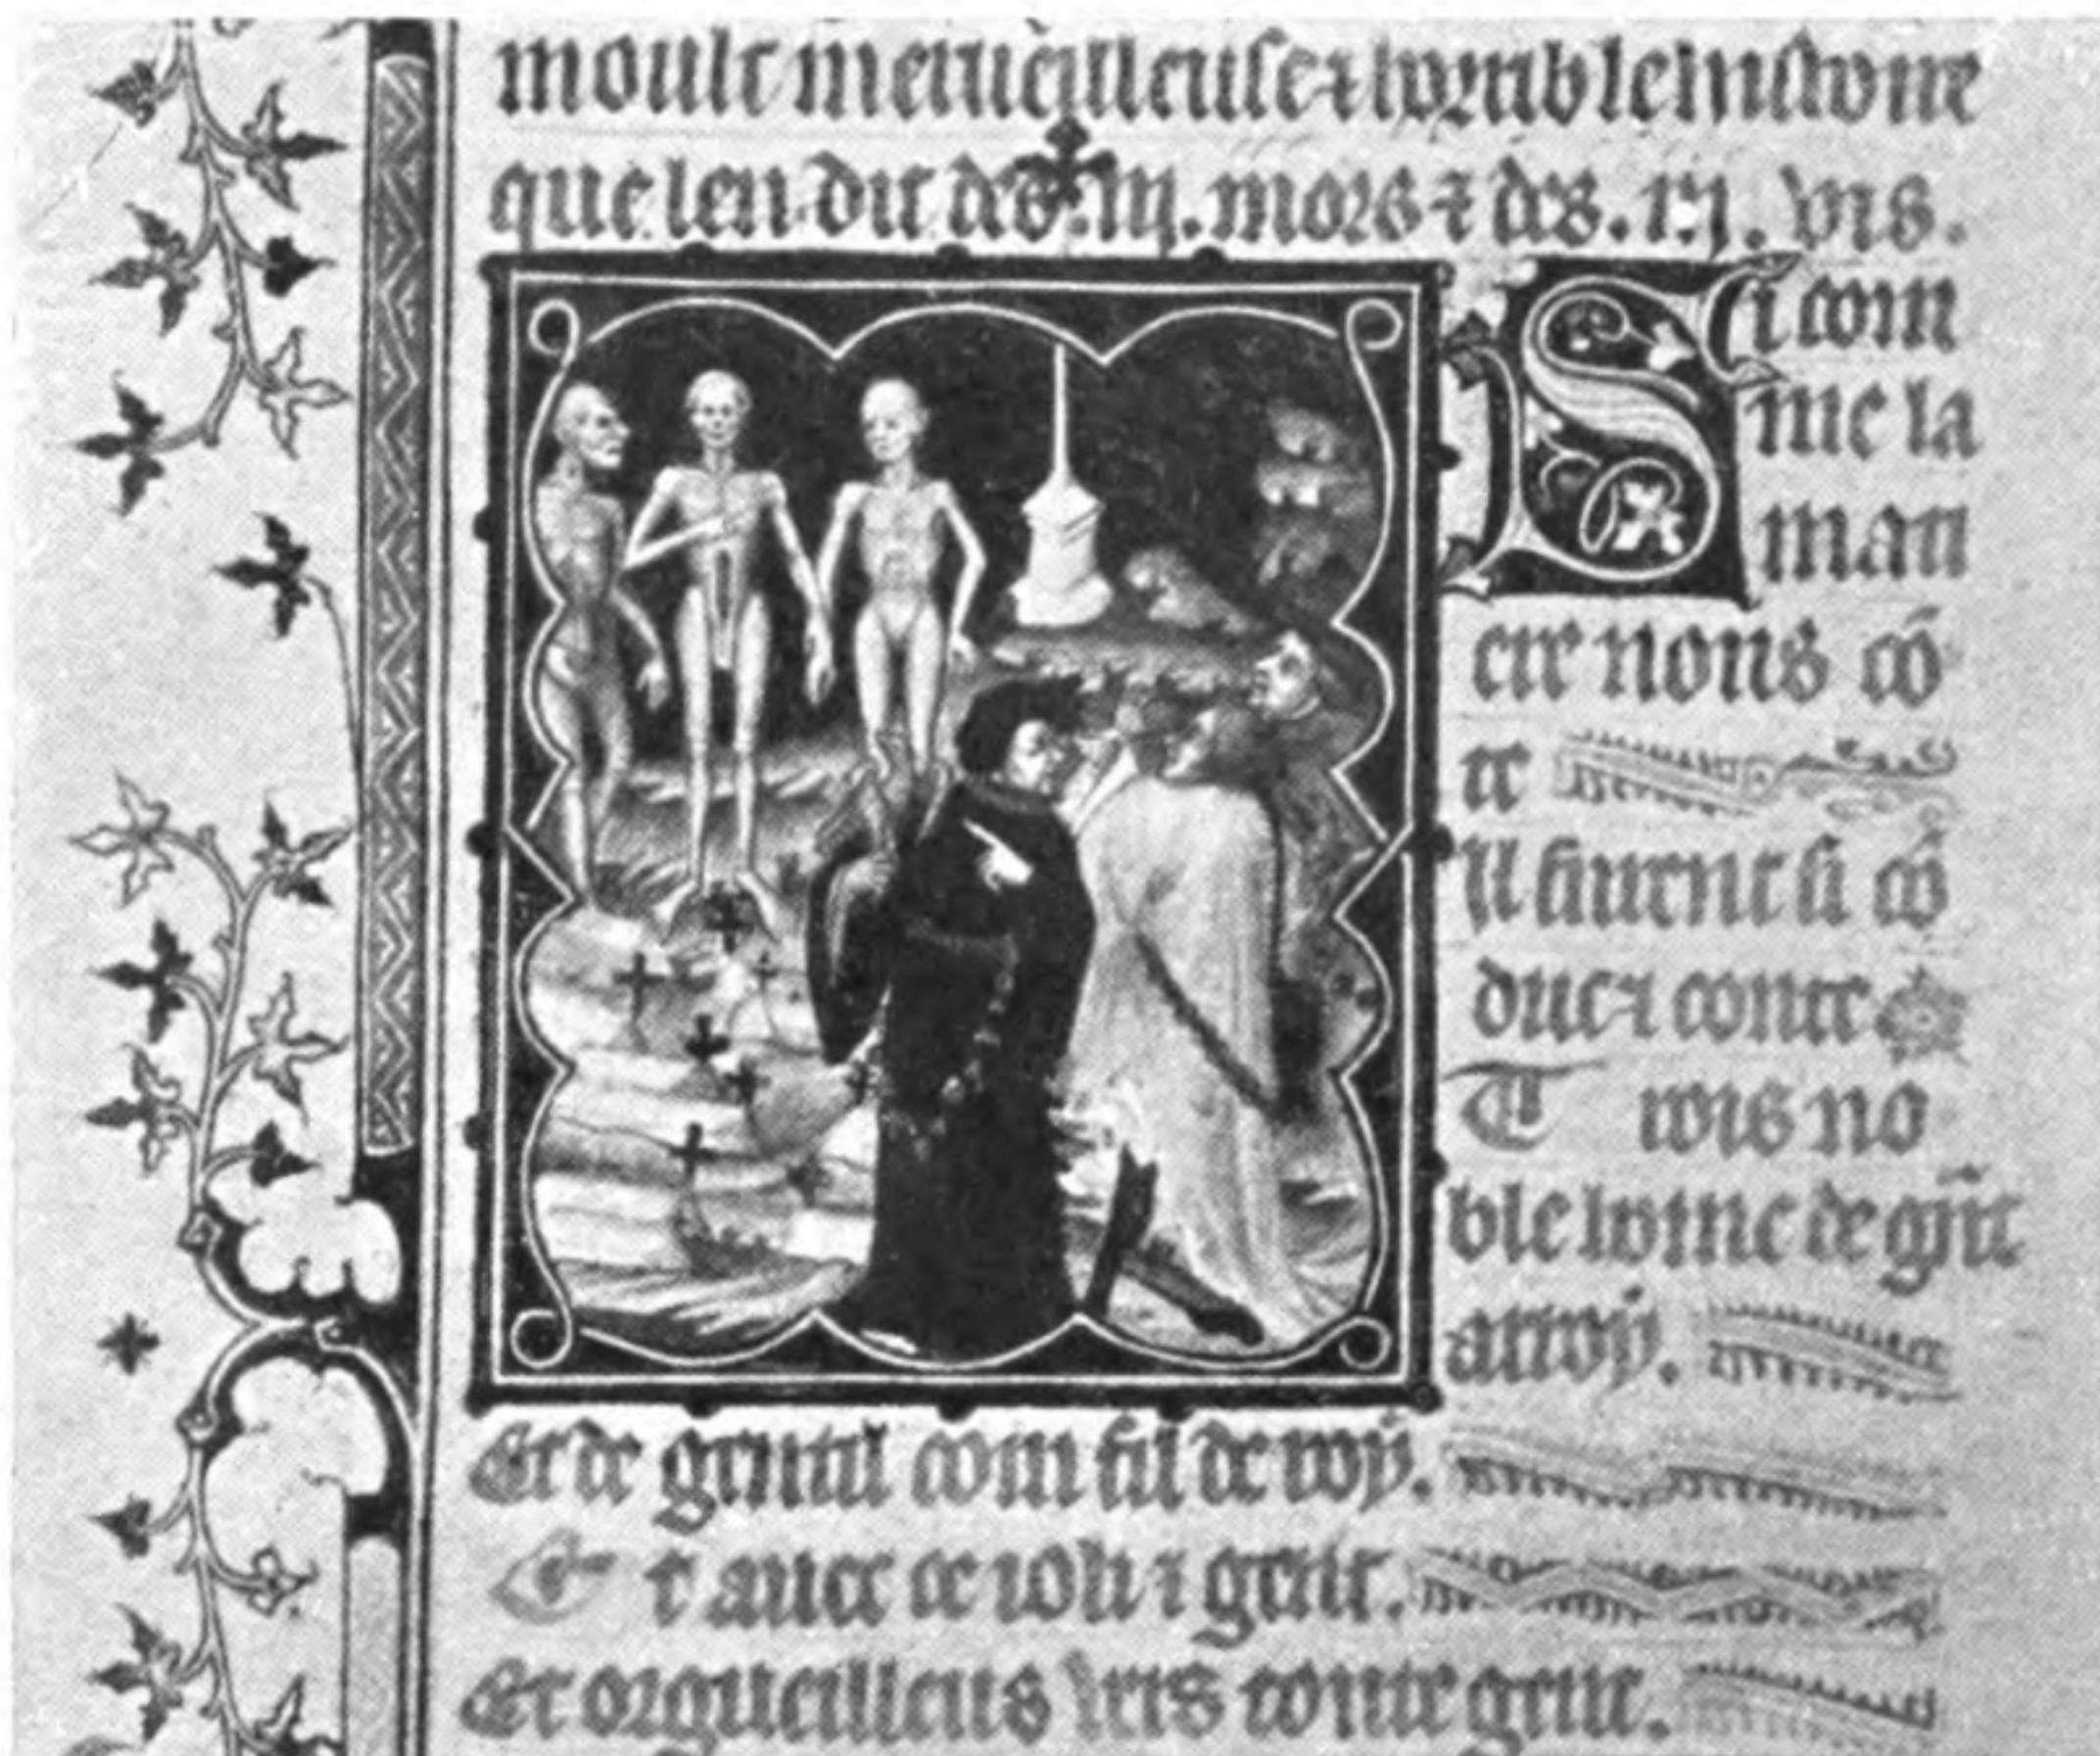 moult merueilleuse ⁊ horrible histoire
que len dit des .iij. mors ⁊ des .iij. vis.
Si com
me la
mati
ere nous cō
te
Il furent si cō
duc ⁊ conte
Trois no
ble home de gr̃nt
arroy.
Et de gentil com fil de roy.
Et auec ce ioli ⁊ gent.
Et orgueilleus vers toute gent.